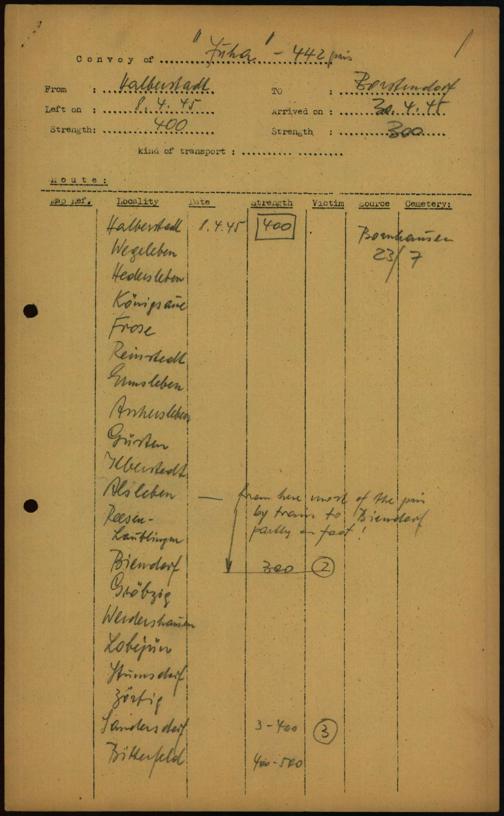 Convoy of "Juha" - 442 pris /
From : Halberstadt TO : Borstendorf
Left on : 8.4.45 Arrived on : 20.4.45
Strength: 400 Strength : 300
kind of transport :
Route:
Map Ref. Locality Date Strength Victim Source Cemetery:
Halberstadt 8.4.45 400 Bornhausen
Wegeleben 23/7
Hedersleben
Königsaue
Frose
Reinstedt
Ermsleben
Aschersleben
Güsten
Ilberstadt
Alsleben — from here most of the pris
Beesen- by train to Biendorf
Laublingen partly on foot!
Biendorf 300 2
Gröbzig
Werdershausen
Löbejün
Stumsdorf
Zörbig
Sandersdorf 3-400 3
Bitterfeld 400-500